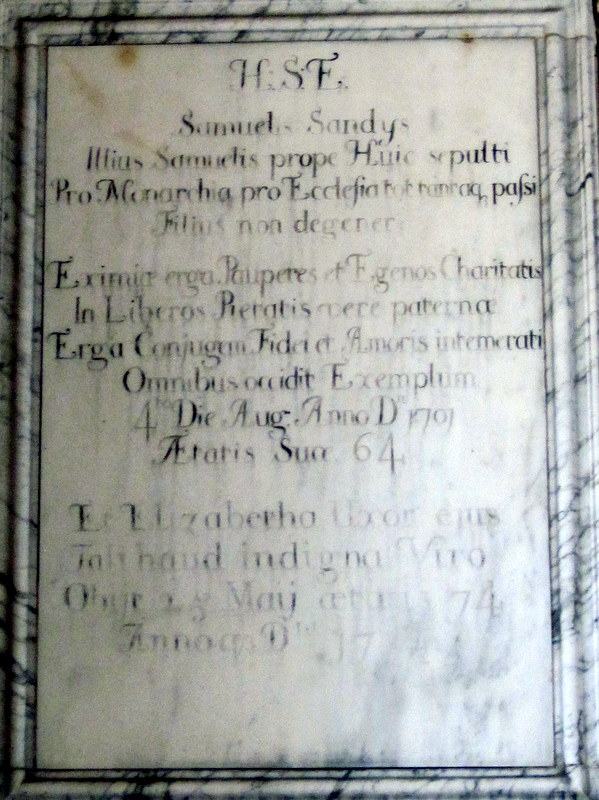 H: S: E.
Samuelis Sandys
Illius Samuelis prope Huic sepulti
Pro Monarchia pro Ecclesia tot tantaq, passi
Filius non degener
Eximiæ erga Pauperes et Egenos Charitatis
In Liberos Pietatis vere paternæ
Erga Conjugem Fidei et Amoris intemerati
Omnibus occidit Exemplum
4to Die Aug: Anno Dni 1701
Ætatis Suæ 64
Et Elizabetha Uxor ejus
Tali haud indigna Viro
Obijt 25 Maij ætatis 74
Annoq; Dni 17